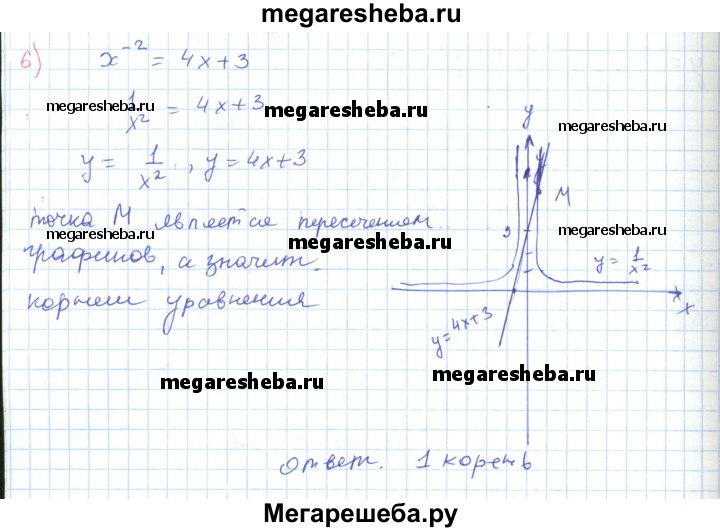 megaresheba.ru
б) x⁻² = 4x+3
megaresheba.ru
1/x² = 4x+3
megaresheba.ru
megaresheba.ru
y = 1/x², y = 4x+3
точка M является пересечением
графиков, а значит
корнем уравнения
megaresheba.ru
megaresheba.ru
y
M
3
y = 1/x²
x
y=4x+3
megaresheba.ru
megaresheba.ru
ответ. 1 корень
Мегарешеба.ру